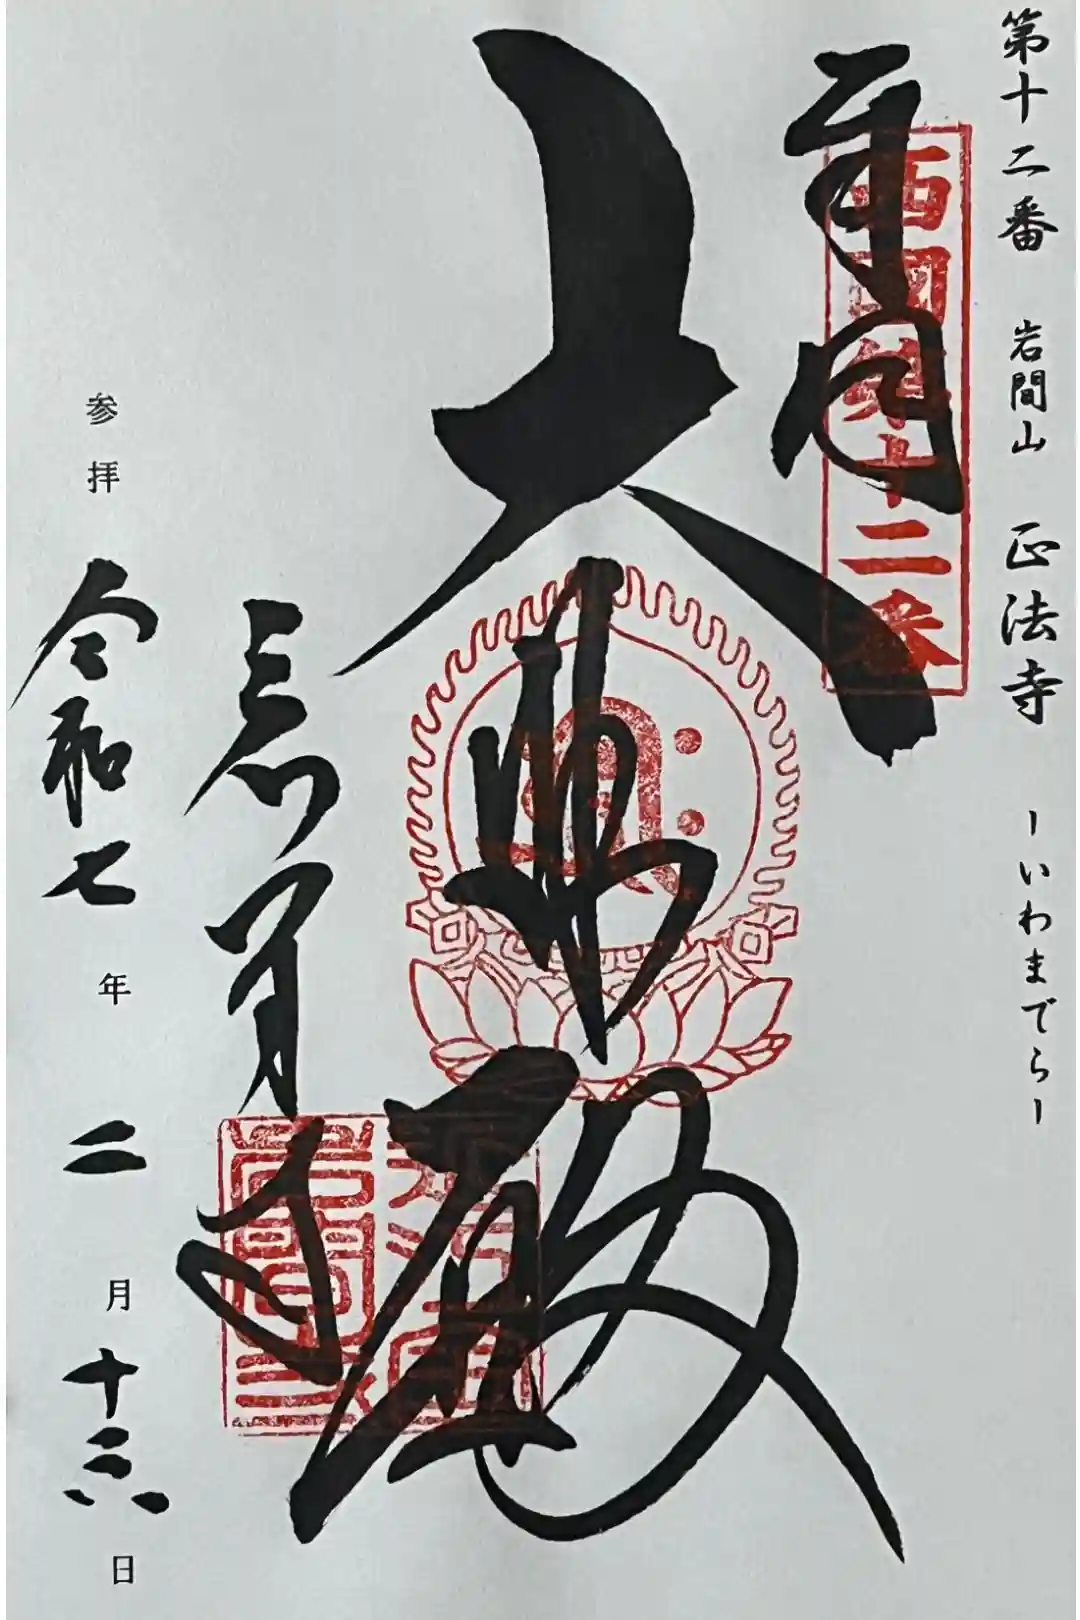 第十二番 岩間山 正法寺 ーいわまでらー
奉拝
西国第十二番
大悲殿
岩間寺
参拝 令和七年 二月 十六日